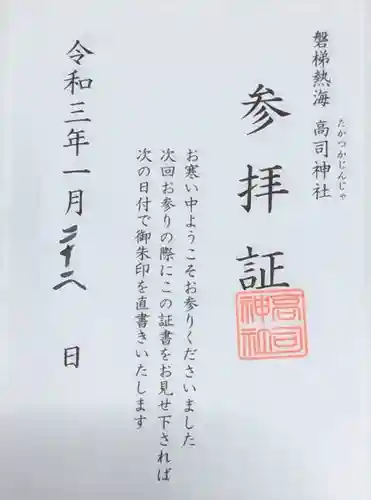 磐梯熱海 高司神社
たかつかじんじゃ
参拝証
高司神社
お寒い中ようこそお参りくださいました
次回お参りの際にこの証書をお見せ下されば
次の日付で御朱印を直書きいたします
令和三年一月二十八日